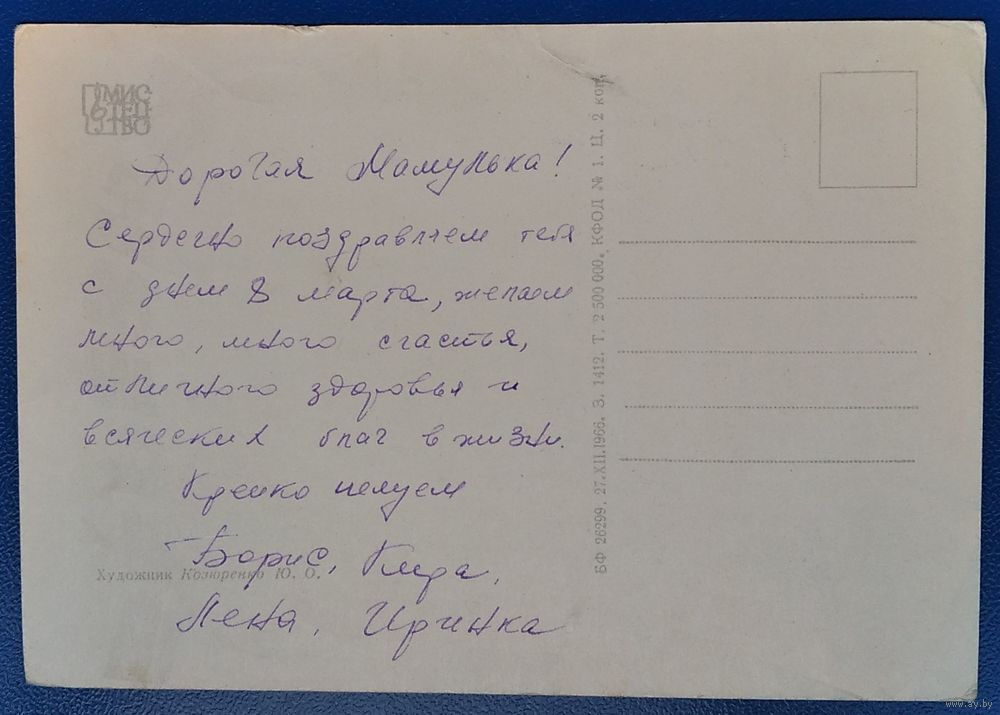 МИС
ТЕЦ
ТВО
Дорогая Мамулька!
Сердечно поздравляем тебя
с днем 8 марта, желаем
много, много счастья,
отличного здоровья и
всяческих благ в жизни.
Крепко целуем
Борис, Кира,
Лена, Иринка
Художник Козюренко Ю. О.
БФ 26299. 27.XII.1966. З. 1412. Т. 2 500 000. КФОД № 1. Ц. 2 коп.
www.ay.by